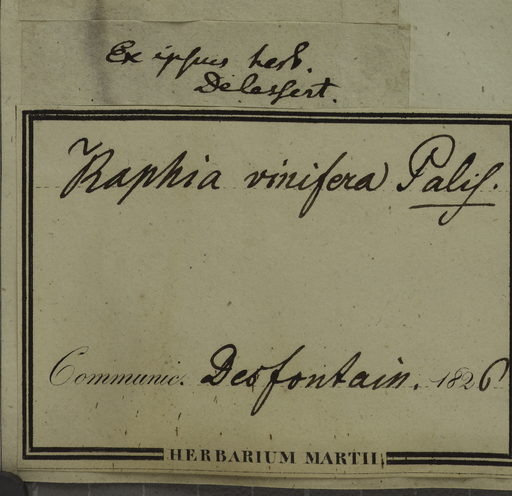 Ex ipsius herb.
Delessert.
Raphia vinifera Palis.
Communic. Desfontain. 1826
HERBARIUM MARTII